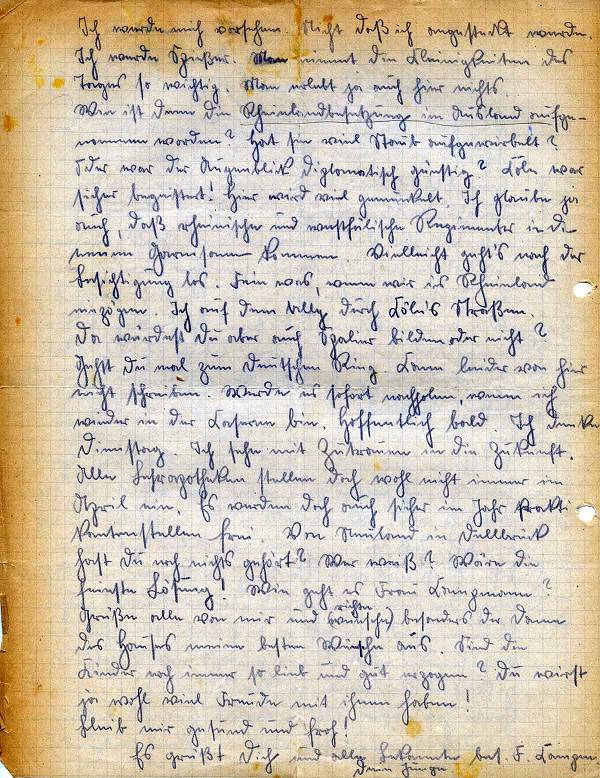 Ich werde mich vorsehen. Nicht daß ich angesteckt werde.
Ich werde Spießer. Man nimmt die Kleinigkeiten des
Tages so wichtig. Man erlebt ja auch hier nichts.
Wie ist denn die Rheinlandbesetzung im Ausland aufge-
nommen worden? Hat sie viel Staub aufgewirbelt?
Oder war der Augenblick diplomatisch günstig? Köln war
sicher begeistert! Hier wird viel gemunkelt. Ich glaube ja
auch, daß rheinische und westfälische Regimenter in die
neuen Garnisonen kommen. Vielleicht geht's nach der
Besichtigung los. Fein was, wenn wir ins Rheinland
einzögen. Ich auf dem Willy durch Köln's Straßen.
Da würdest Du aber auch Spalier bilden oder nicht?
Gehst Du mal zum Deutschen Ring. Kann leider von hier
nicht schreiben. Werde es sofort nachholen, wenn ich
wieder in der Kaserne bin. Hoffentlich bald. Ich denke
Dienstag. Ich sehe mit Zutrauen in die Zukunft.
Alle Lehrapotheken stellen doch wohl nicht immer im
April ein. Es werden doch auch sicher im Jahr Prakti-
kantenstellen frei. Von Neuland in Dellbrück
hast Du noch nichts gehört? Wer weiß? Wäre die
feinste Lösung! Wie geht es Frau Langmann?
Grüße alle von mir und richte (wünsche) besonders der Dame
des Hauses meine besten Wünsche aus. Sind die
Kinder noch immer so lieb und gut erzogen? Du wirst
ja wohl viel Freude mit ihnen haben!
Bleib mir gesund und froh!
Es grüßt Dich und alle Bekannten bes. F. Langm
Dein Junge